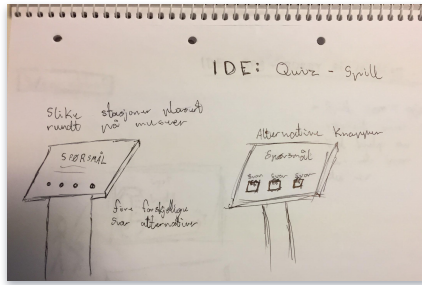 IDE: Quiz - Spill
Slike stasjoner plassert
rundt på museer
SPØRSMÅL
fire forskjellige
svar alternativer
Alternative Knapper
Spørsmål
Svar Svar Svar